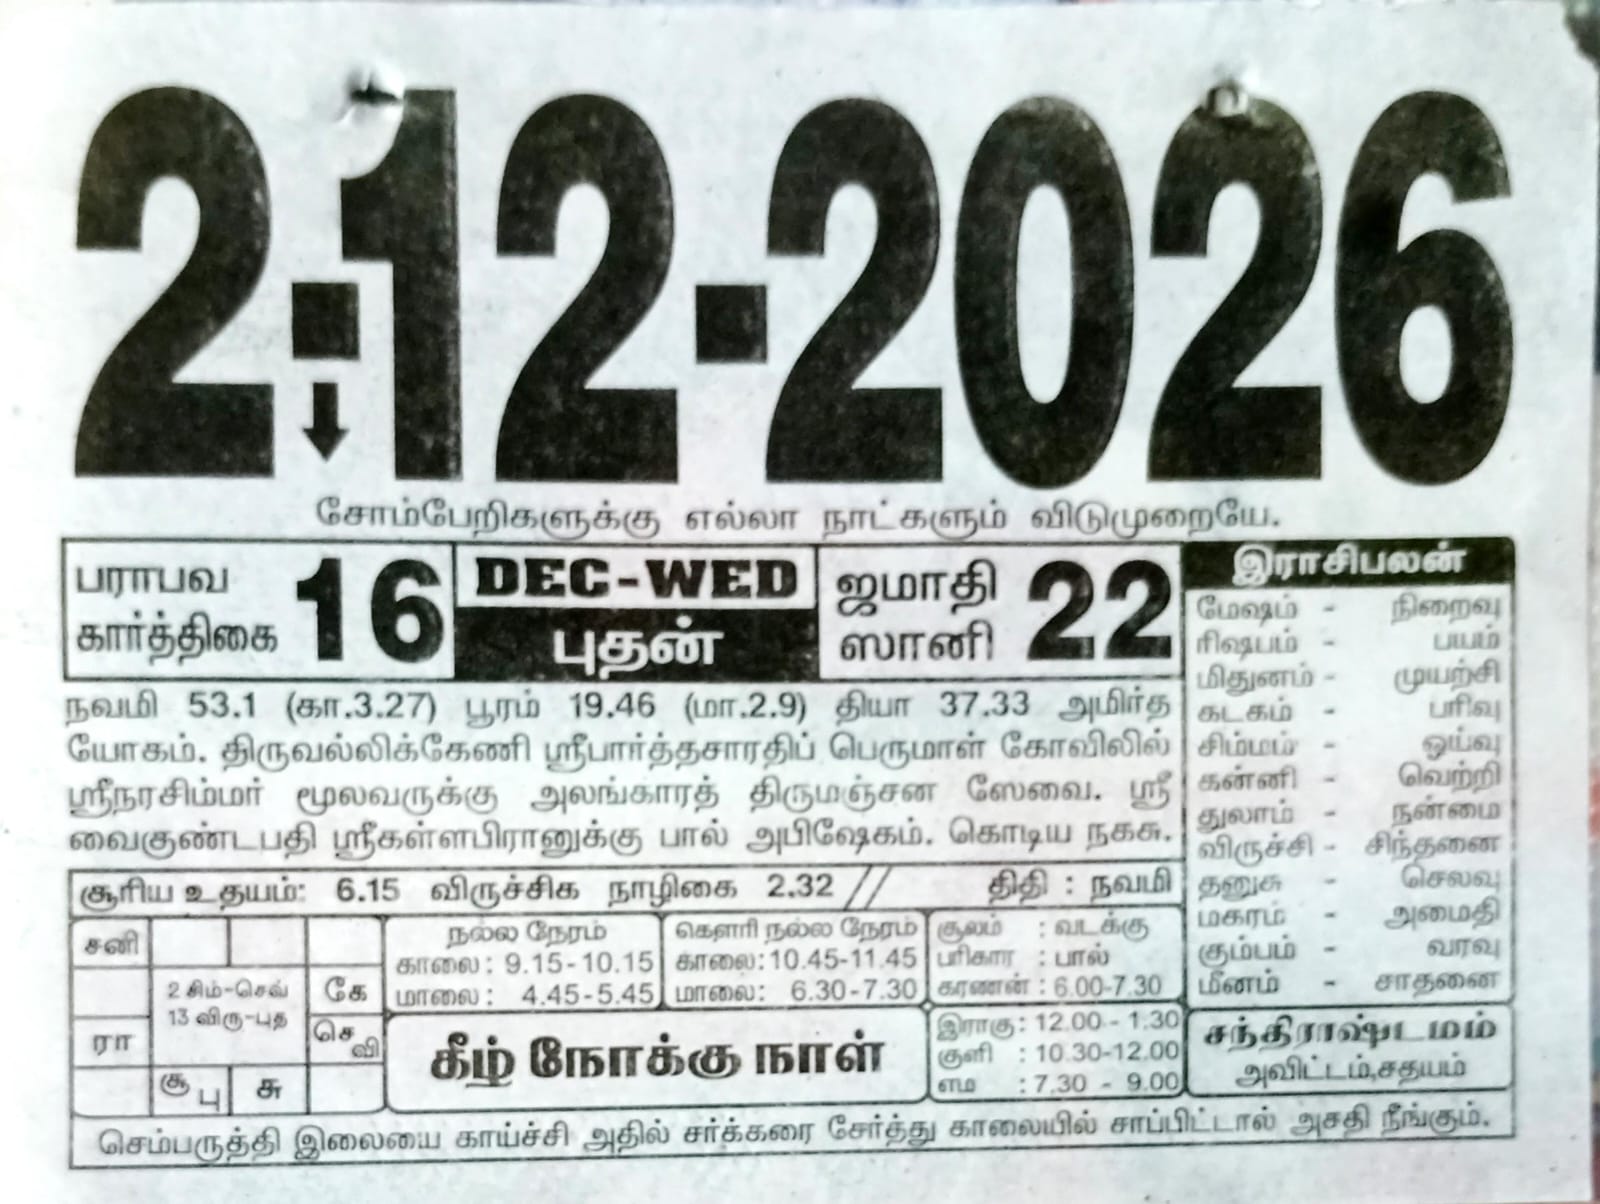 2-12-2026
சோம்பேறிகளுக்கு எல்லா நாட்களும் விடுமுறையே.
பராபவ
கார்த்திகை 16
DEC-WED
புதன்
ஜமாதி
ஸானி 22
நவமி 53.1 (கா.3.27) பூரம் 19.46 (மா.2.9) தியா 37.33 அமிர்த
யோகம். திருவல்லிக்கேணி ஸ்ரீபார்த்தசாரதிப் பெருமாள் கோவிலில்
ஸ்ரீநரசிம்மர் மூலவருக்கு அலங்காரத் திருமஞ்சன ஸேவை. ஸ்ரீ
வைகுண்டபதி ஸ்ரீகள்ளபிரானுக்கு பால் அபிஷேகம். கொடிய நகசு.
சூரிய உதயம்: 6.15 விருச்சிக நாழிகை 2.32 // திதி : நவமி
இராசிபலன்
மேஷம் - நிறைவு
ரிஷபம் - பயம்
மிதுனம் - முயற்சி
கடகம் - பரிவு
சிம்மம் - ஓய்வு
கன்னி - வெற்றி
துலாம் - நன்மை
விருச்சி - சிந்தனை
தனுசு - செலவு
மகரம் - அமைதி
கும்பம் - வரவு
மீனம் - சாதனை
சனி
2 சிம்-செவ்
13 விரு-புத
கே
ரா
செ
வி
சூ
பு
சு
நல்ல நேரம்
காலை: 9.15-10.15
மாலை: 4.45-5.45
கௌரி நல்ல நேரம்
காலை: 10.45-11.45
மாலை: 6.30-7.30
சூலம் : வடக்கு
பரிகார : பால்
கரணன் : 6.00-7.30
கீழ் நோக்கு நாள்
இராகு: 12.00 - 1.30
குளி : 10.30-12.00
எம : 7.30 - 9.00
சந்திராஷ்டமம்
அவிட்டம்,சதயம்
செம்பருத்தி இலையை காய்ச்சி அதில் சர்க்கரை சேர்த்து காலையில் சாப்பிட்டால் அசதி நீங்கும்.